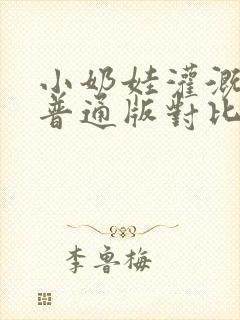 小奶娃灌溉
普通版對比
李魯梅